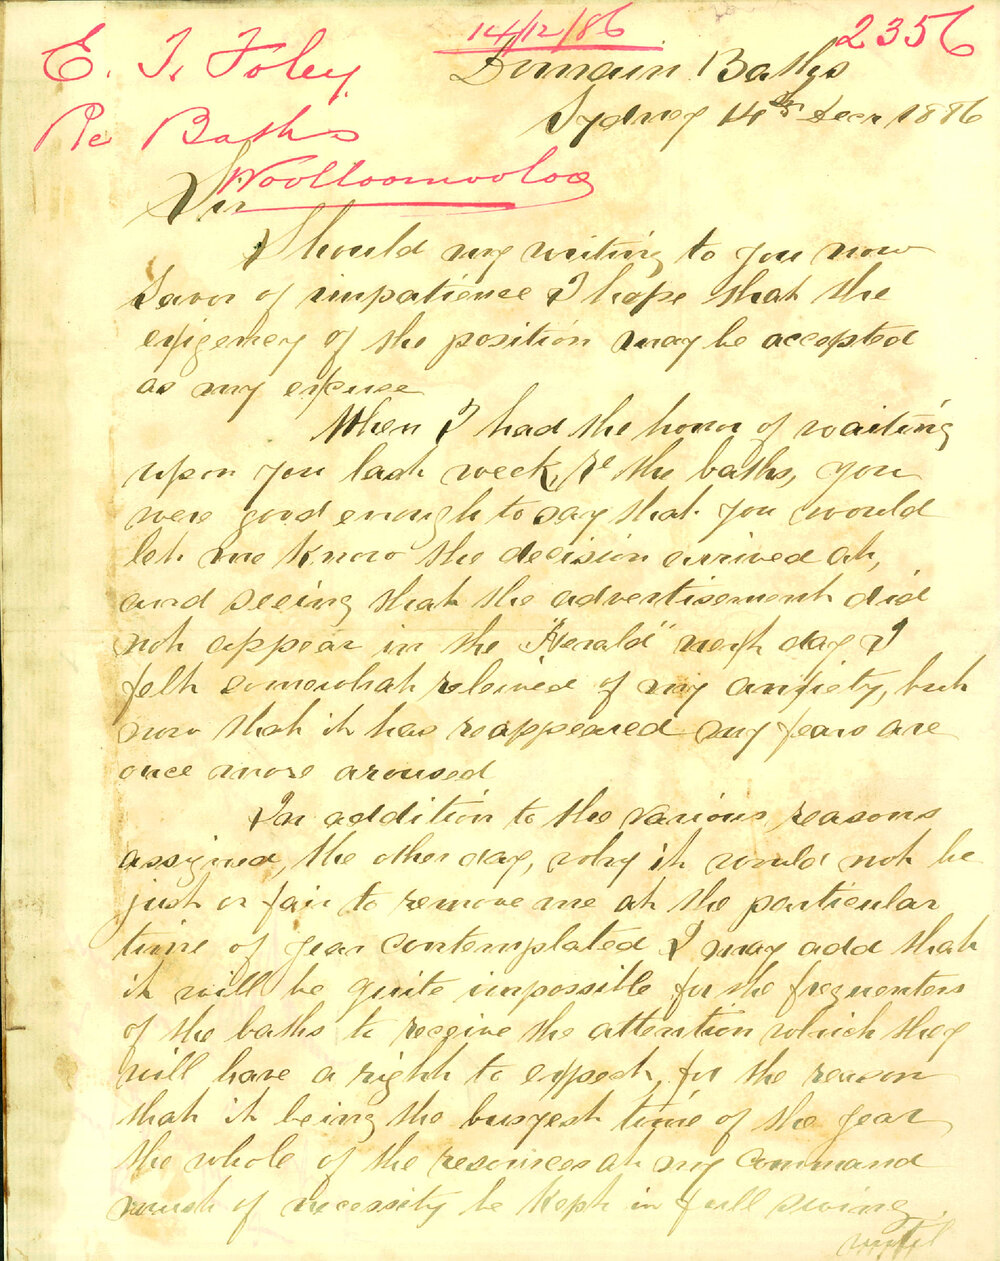 14/12/86
2356
E. T. Foley
Re Baths
Woolloomooloo
Domain Baths
Sydney 14th Decr 1886
Sir
Should my writing to you now
savor of impatience I hope that the
exigency of the position may be accepted
as my excuse
When I had the honor of waiting
upon you last week, re the baths, you
were good enough to say that you would
let me know the decision arrived at,
and seeing that the advertisement did
not appear in the "Herald" next day I
felt somewhat releived of my anxiety, but
now that it has reappeared my fears are
once more aroused
In addition to the various reasons
assigned, the other day, why it would not be
just or fair to remove me at the particular
time of year contemplated I may add that
it will be quite impossible for the frequenters
of the baths to receive the attention which they
will have a right to expect, for the reason
that it being the busyest time of the year
the whole of the resources at my command
must of necessity be kept in full swing
until